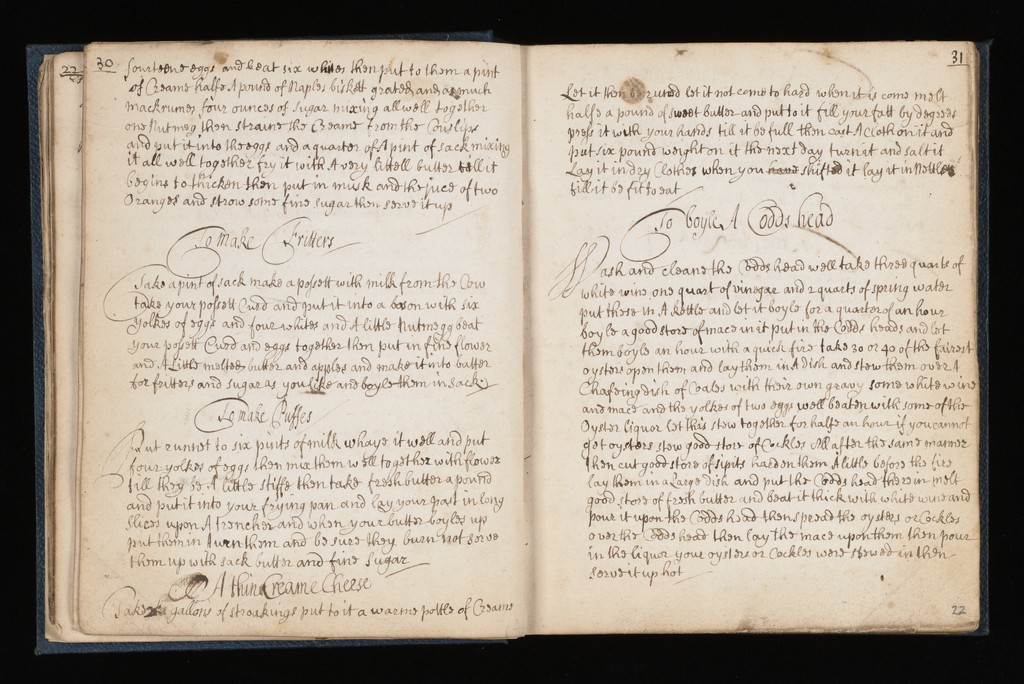 30
fourteene eggs and beat six whites then put to them a pint
of Creame halfe A pound of Naples bisket grated and as much
mackrunes four ounces of sugar mixing all well together
one Nutmeg then straine the Creame from the Couslips
and put it into the eggs and a quarter of A pint of sack mixing
it all well together fry it with A very littell butter till it
begins to thicken then put in musk and the juce of two
Oranges and strow some fine sugar then serve it up
To Make Fritters
Take a pint of sack make a possett with milk from the Cow
take your possett Curd and put it into a bason with six
yolkes of eggs and four whites and A little Nutmegg beat
your possett Curd and eggs together then put in fine flower
and A Little melted butter and apples and make it into batter
for fritters and sugar as you like and boyle them in sack
To make Puffes
Put runnet to six pints of milk whaye it well and put
four yolkes of eggs then mix them well together with flower
till they be A little stiffe then take fresh butter a pound
and put it into your frying pan and lay your past in long
slices upon A trencher and when your butter boyles up
put them in turn them and be sure they burn not serve
them up with sack butter and fine sugar
A thin Creame Cheese
Take gallons of stroakings put to it a warme pottle of Creame
31
Let it then be runed let it not come to hard when it is come melt
halfe a pound of sweet butter and put to it fill your fatt by degrees
press it with your hands till it be full then cast A Cloth on it and
put six pound weight on it the next day turn it and salt it
Lay it in dry Clothes when you have shifted it lay it in Nettles
till it be fit to eat
To boyle A Codds head
Wash and cleane the Codds head well take three quarts of
white wine one quart of vinegar and 2 quarts of spring water
put these in A kettle and let it boyle for a quarter of an hour
boyle a good store of mace in it put in the Codds heads and let
them boyle an hour with a quick fire take 30 or 40 of the fairest
oysters open them and lay them in A dish and stew them over A
Chafeing dish of Coales with their own gravy some white wine
and mace and the yolkes of two eggs well beaten with some of the
Oyster liquor let this stew together for halfe an hour if you cannot
get oysters stew good store of Cockles all after the same manner
then cut good store of sipits harden them A little before the fire
lay them in a large dish and put the Codds head therein melt
good store of fresh butter and beat it thick with white wine and
pour it upon the Codds head then spread the oysters or Cockles
over the Codds head then lay the mace upon them then pour
in the liquor your oysters or Cockles were stewed in then
serve it up hot
22